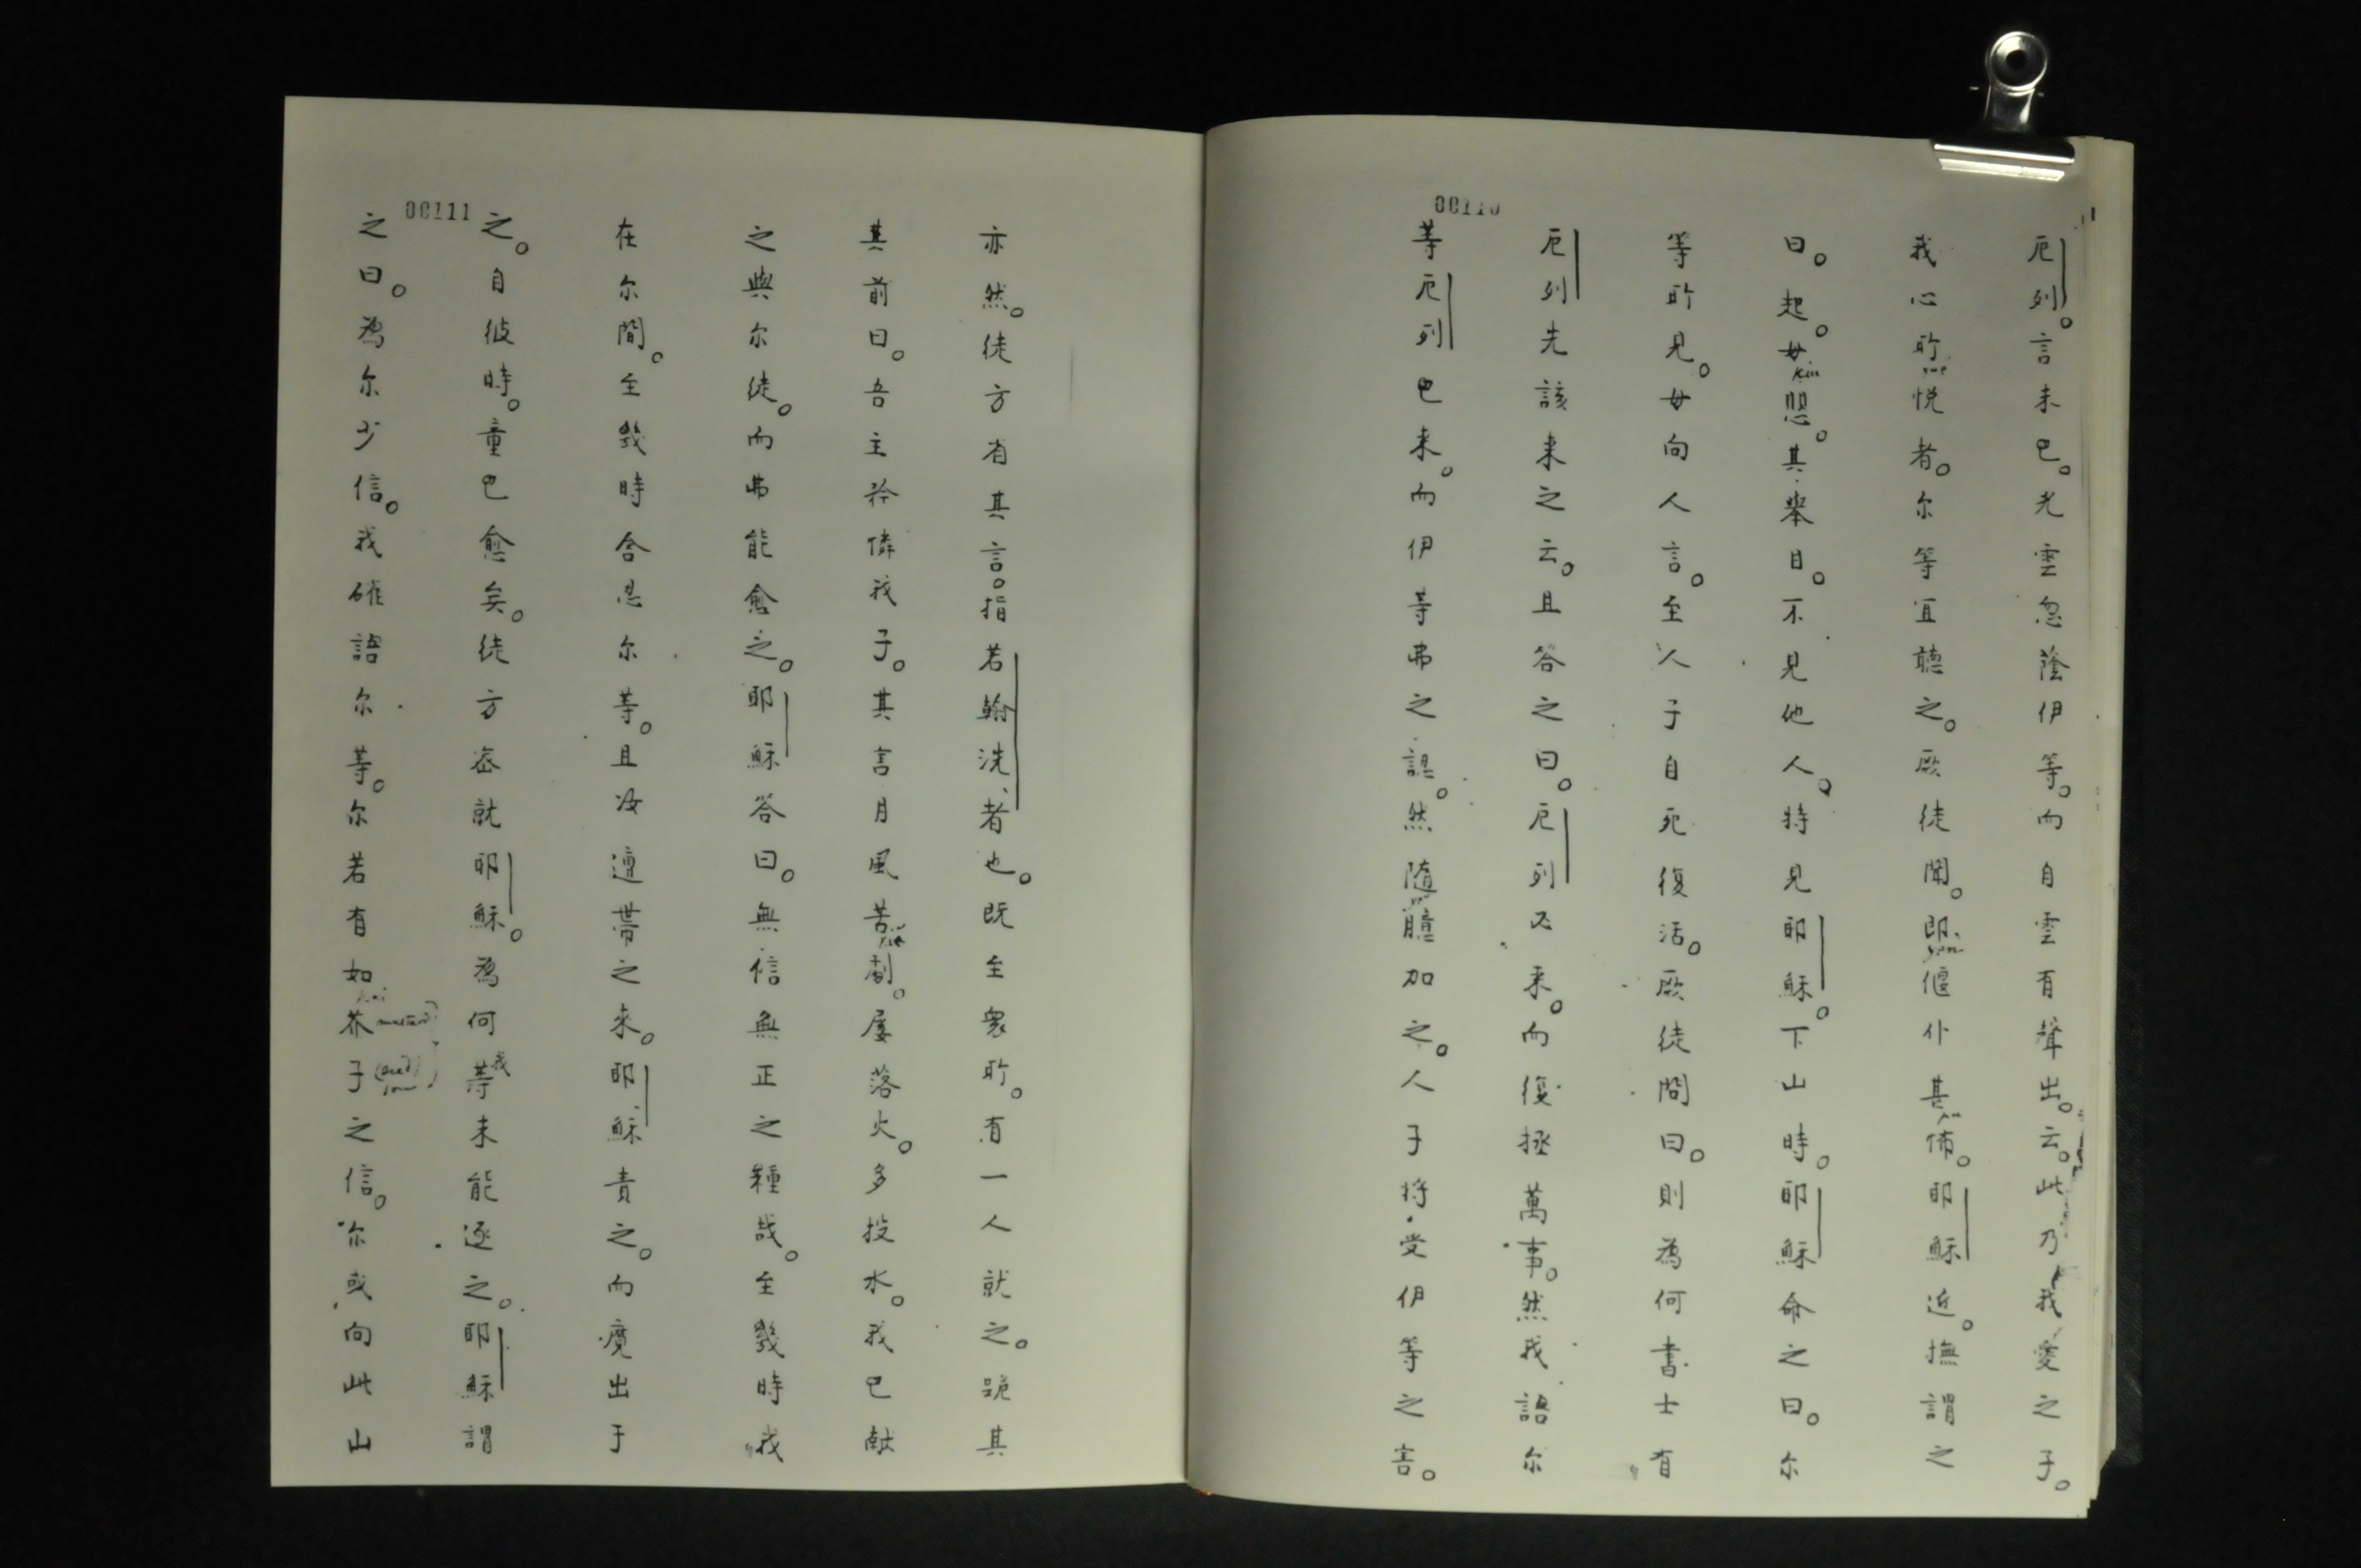 00110
厄列。言未巳。光雲忽蔭伊等。而自雲有聲出。云。此乃我愛之子。
我心所悦者。尔等宜聽之。厥徒聞。即偃仆甚怖。耶穌近。撫謂之
曰。起。毋愳。其舉目。不見他人。特見耶穌。下山時。耶穌命之曰。尔
等所見。毋向人言。至人子自死復活。厥徒問曰。則為何書士有
厄列先該来之云。且答之曰。厄列必来。而復拯萬事。然我語尔
等厄列巳来。而伊等弗之認。然隨臆加之。人子将受伊等之害。
00111
亦然。徒方省其言。指若翰洗者也。既至衆所。有一人就之。跪其
其前曰。吾主矜憐我子。其害月風苦劇。屡落火。多投水。我巳献
之與尔徒。而弗能愈之。耶穌答曰。無信無正之種哉。至幾時我
在尔間。至幾時含忍尔等。且汝遭帶之来。耶穌責之。而魔出于
之。自彼時。童巳愈矣。徒方密就耶穌。為何我等未能逐之。耶穌謂
之曰。為尔少信。我確語尔等。尔若有如芥子之信。尔或向此山
mustard